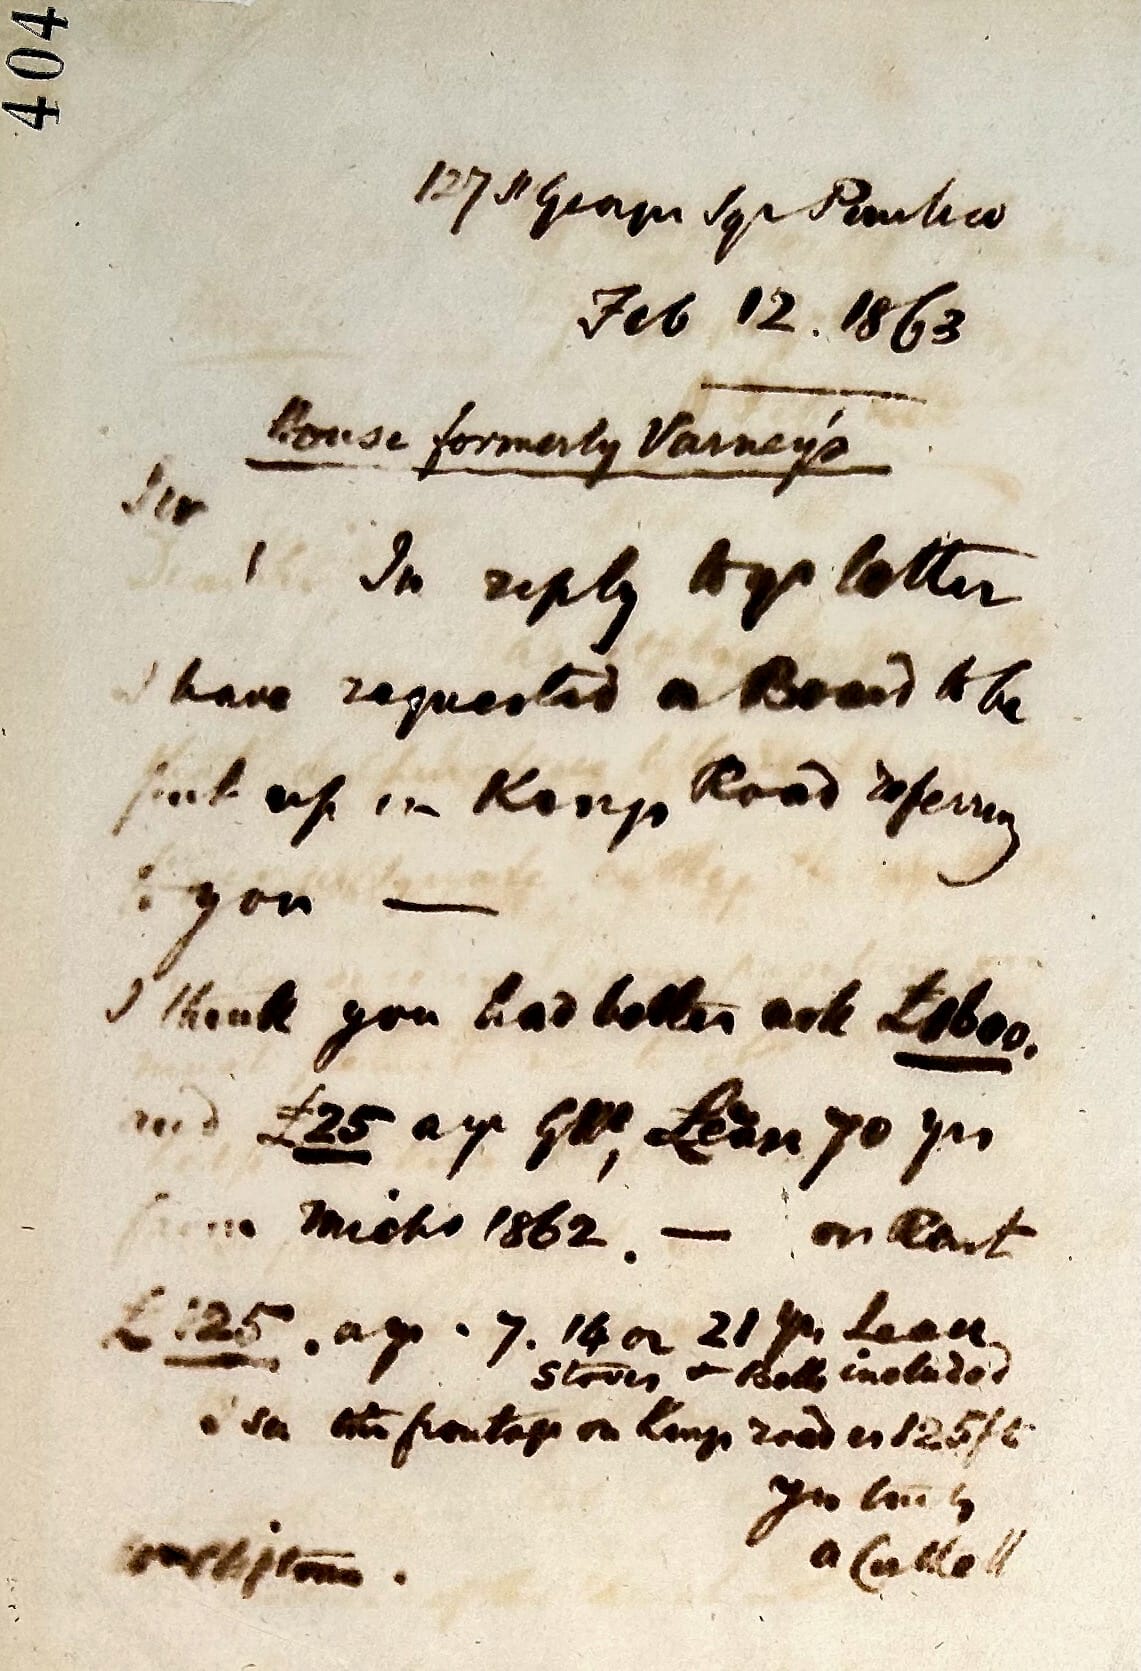 404
127 St Georges Sqr Pimlico
Feb 12. 1863
House formerly Varney's
Sir
In reply to yr letter
I have requested a Board to be
put up in Kings Road referring
to you —
I think you had better ask £1600.
and £25 a yr , Lease 70 yrs
from Michs 1862. — or Rent
£125. a yr . 7. 14 or 21 yrs Lease
Stoves & Bells included
I see the frontage on Kings road is 125 ft
Yrs truly
a